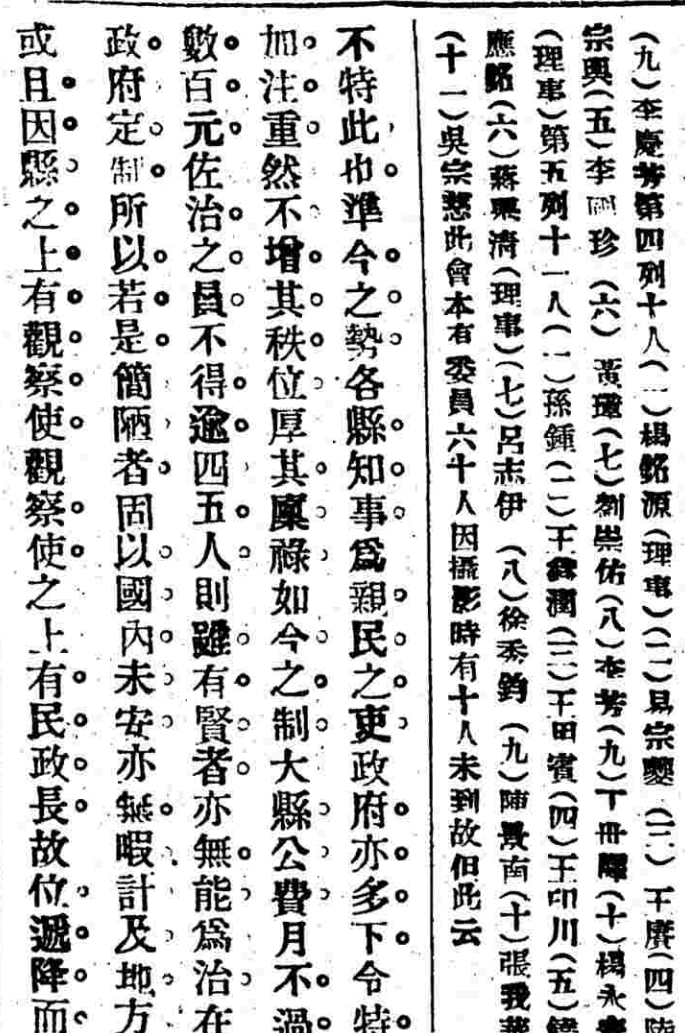 (九)李慶芳第四列十人(一)楊銘源(理事)(二)易宗夔(三)王賡(四)陸
宗輿(五)李國珍(六)黃璋(七)劉崇佑(八)李芳(九)丁世嶧(十)楊永
(理事)第五列十一人(一)孫鍾(二)王鑫潤(三)王田賓(四)王印川(五)
應銘(六)蔣舉清(理事)(七)呂志伊(八)徐秀鈞(九)陳景南(十)張我華
(十一)吳宗慈此會本有委員六十人因攝影時有十人未到故但此云
不特此也準今之勢各縣知事爲親民之吏政府亦多下令特
加注重然不增其秩位厚其廩祿如今之制大縣公費月不過
數百元佐治之員不得逾四五人則雖有賢者亦無能爲治在
政府定制所以若是簡陋者固以國內未安亦無暇計及地方
或且因縣之上有觀察使觀察使之上有民政長故位遞降而